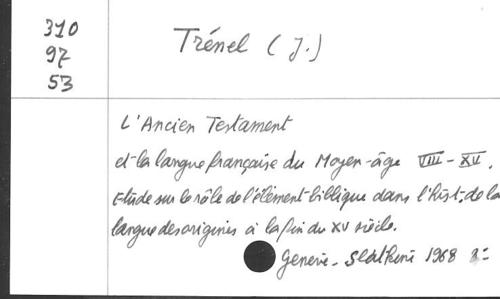 310
97
53
Trénel (J.)
L'Ancien Testament
et la langue française du Moyen-âge VIII - XV.
Etude sur le rôle de l'élément biblique dans l'hist. de la
langue des origines à la fin du XV siècle.
Geneve - Slatkine 1968 8°